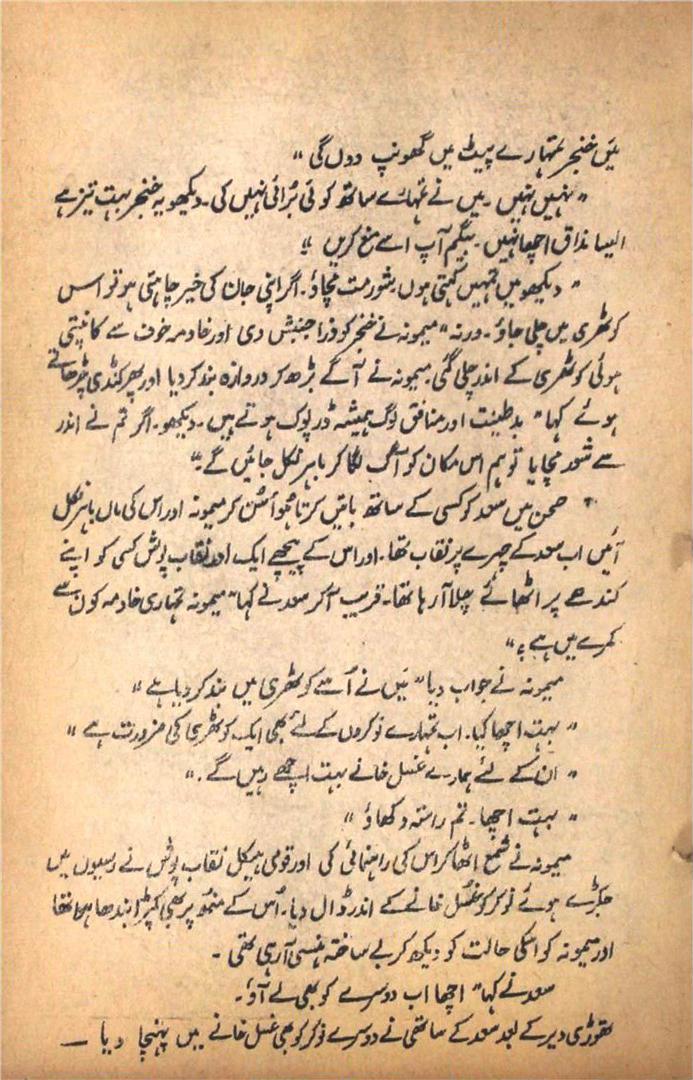 میں خنجر تمہارے پیٹ میں گھونپ دوں گی "
" نہیں نہیں۔ میں نے تمہارے ساتھ کوئی برائی نہیں کی۔ دیکھو یہ خنجر بہت تیز ہے
ایسا مذاق اچھا نہیں۔ بیگم آپ اسے منع کریں "
" دیکھو میں تمہیں کہتی ہوں، شور مت مچاؤ۔ اگر اپنی جان کی خیر چاہتی ہو تو اس
کوٹھری میں چلی جاؤ۔ ورنہ " میمونہ نے خنجر کو ذرا جنبش دی اور خادمہ خوف سے کانپتی
ہوئی کوٹھری کے اندر چلی گئی۔ میمونہ نے آگے بڑھ کر دروازہ بند کر دیا اور پھر کنڈی چڑھاتے
ہوئے کہا " بدطینت اور منافق لوگ ہمیشہ ڈرپوک ہوتے ہیں۔ دیکھو۔ اگر تم نے اندر
سے شور مچایا تو ہم اس مکان کو آگ لگا کر باہر نکل جائیں گے۔"
صحن میں سعد کو کسی کے ساتھ باتیں کرتا ہوا سُن کر میمونہ اور اس کی ماں باہر نکل
آئیں اب سعد کے چہرے پر نقاب تھا۔ اور اس کے پیچھے ایک اور نقاب پوش کسی کو اپنے
کندھے پر اٹھائے چلا آ رہا تھا۔ قریب آ کر سعد نے کہا " میمونہ تمہاری خادمہ کون سے
کمرے میں ہے ؟ "
میمونہ نے جواب دیا " میں نے اُسے کوٹھری میں بند کر دیا ہے "
" بہت اچھا کیا۔ اب تمہارے نوکروں کے لئے بھی ایک کوٹھری کی ضرورت ہے "
" ان کے لئے ہمارے غسل خانے بہت اچھے رہیں گے۔ "
" بہت اچھا۔ تم راستہ دکھاؤ "
میمونہ نے شمع اٹھا کر اس کی راہنمائی کی اور قومی ہیکل نقاب پوش نے رسیوں میں
جکڑے ہوئے نوکر کو غسل خانے کے اندر ڈال دیا۔ اُس کے منہ پر بھی کپڑا بندھا ہوا تھا
اور میمونہ کو اسکی حالت کو دیکھ کر بے ساختہ ہنسی آ رہی تھی ۔
سعد نے کہا " اچھا اب دوسرے کو بھی لے آؤ۔
تھوڑی دیر کے بعد سعد کے ساتھی نے دوسرے نوکر کو بھی غسل خانے میں پہنچا دیا —